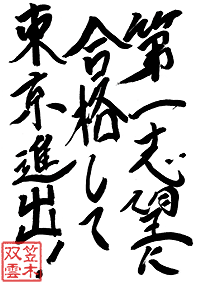 第一志望に
合格して
東京進出!
笠木
双雲